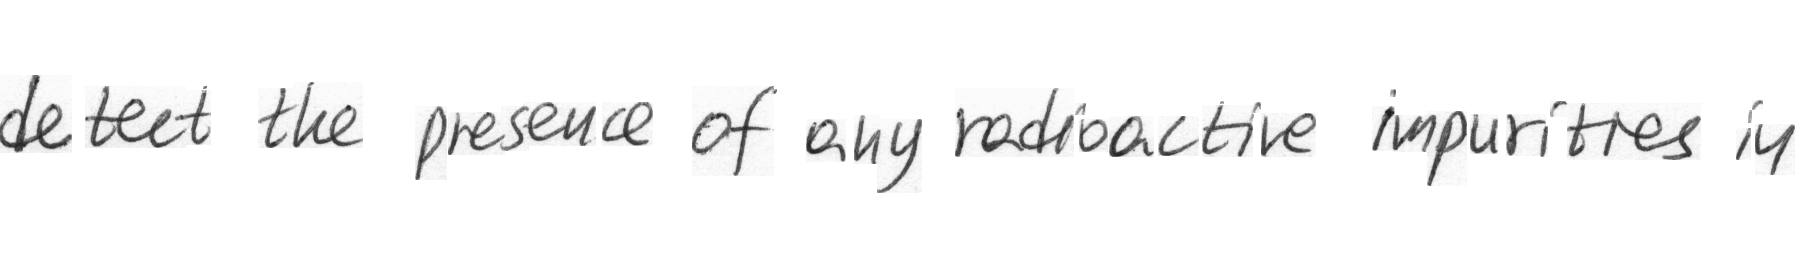 detect the presence of any radioactive impurities in